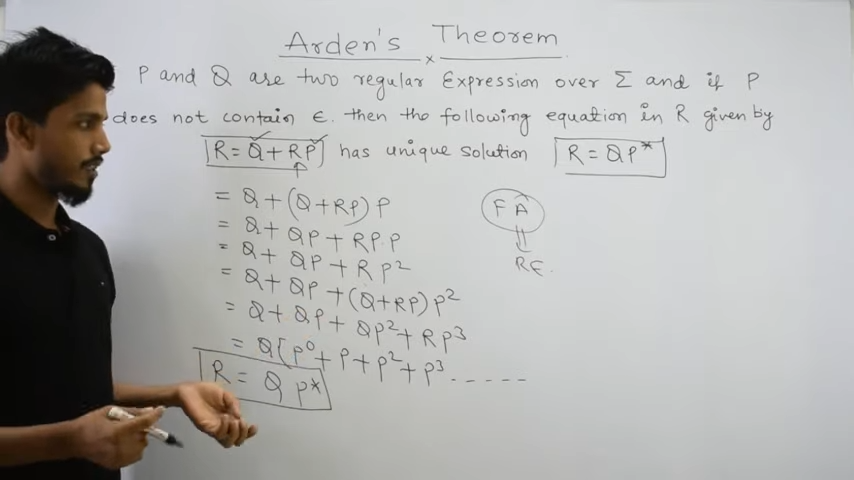 Arden's Theorem
P and Q are two regular Expression over Σ and if P
does not contain ϵ. then the following equation in R given by
R = Q + RP has unique solution R = QP*
= Q + (Q+RP) P
= Q + QP + RP.P
= Q + QP + RP²
= Q + QP + (Q+RP) P²
= Q + QP + QP² + RP³
= Q[P⁰ + P + P² + P³ ------
R = Q P*
FA
RE.